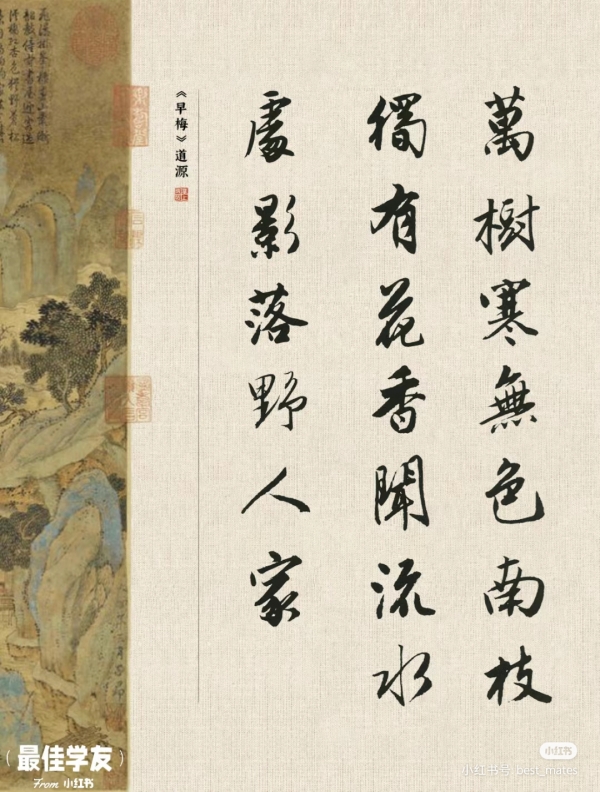 萬樹寒無色南枝
獨有花香聞流水
處影落野人家
《早梅》道源
最佳学友
From 小红书
小红书
小红书号:best_mates